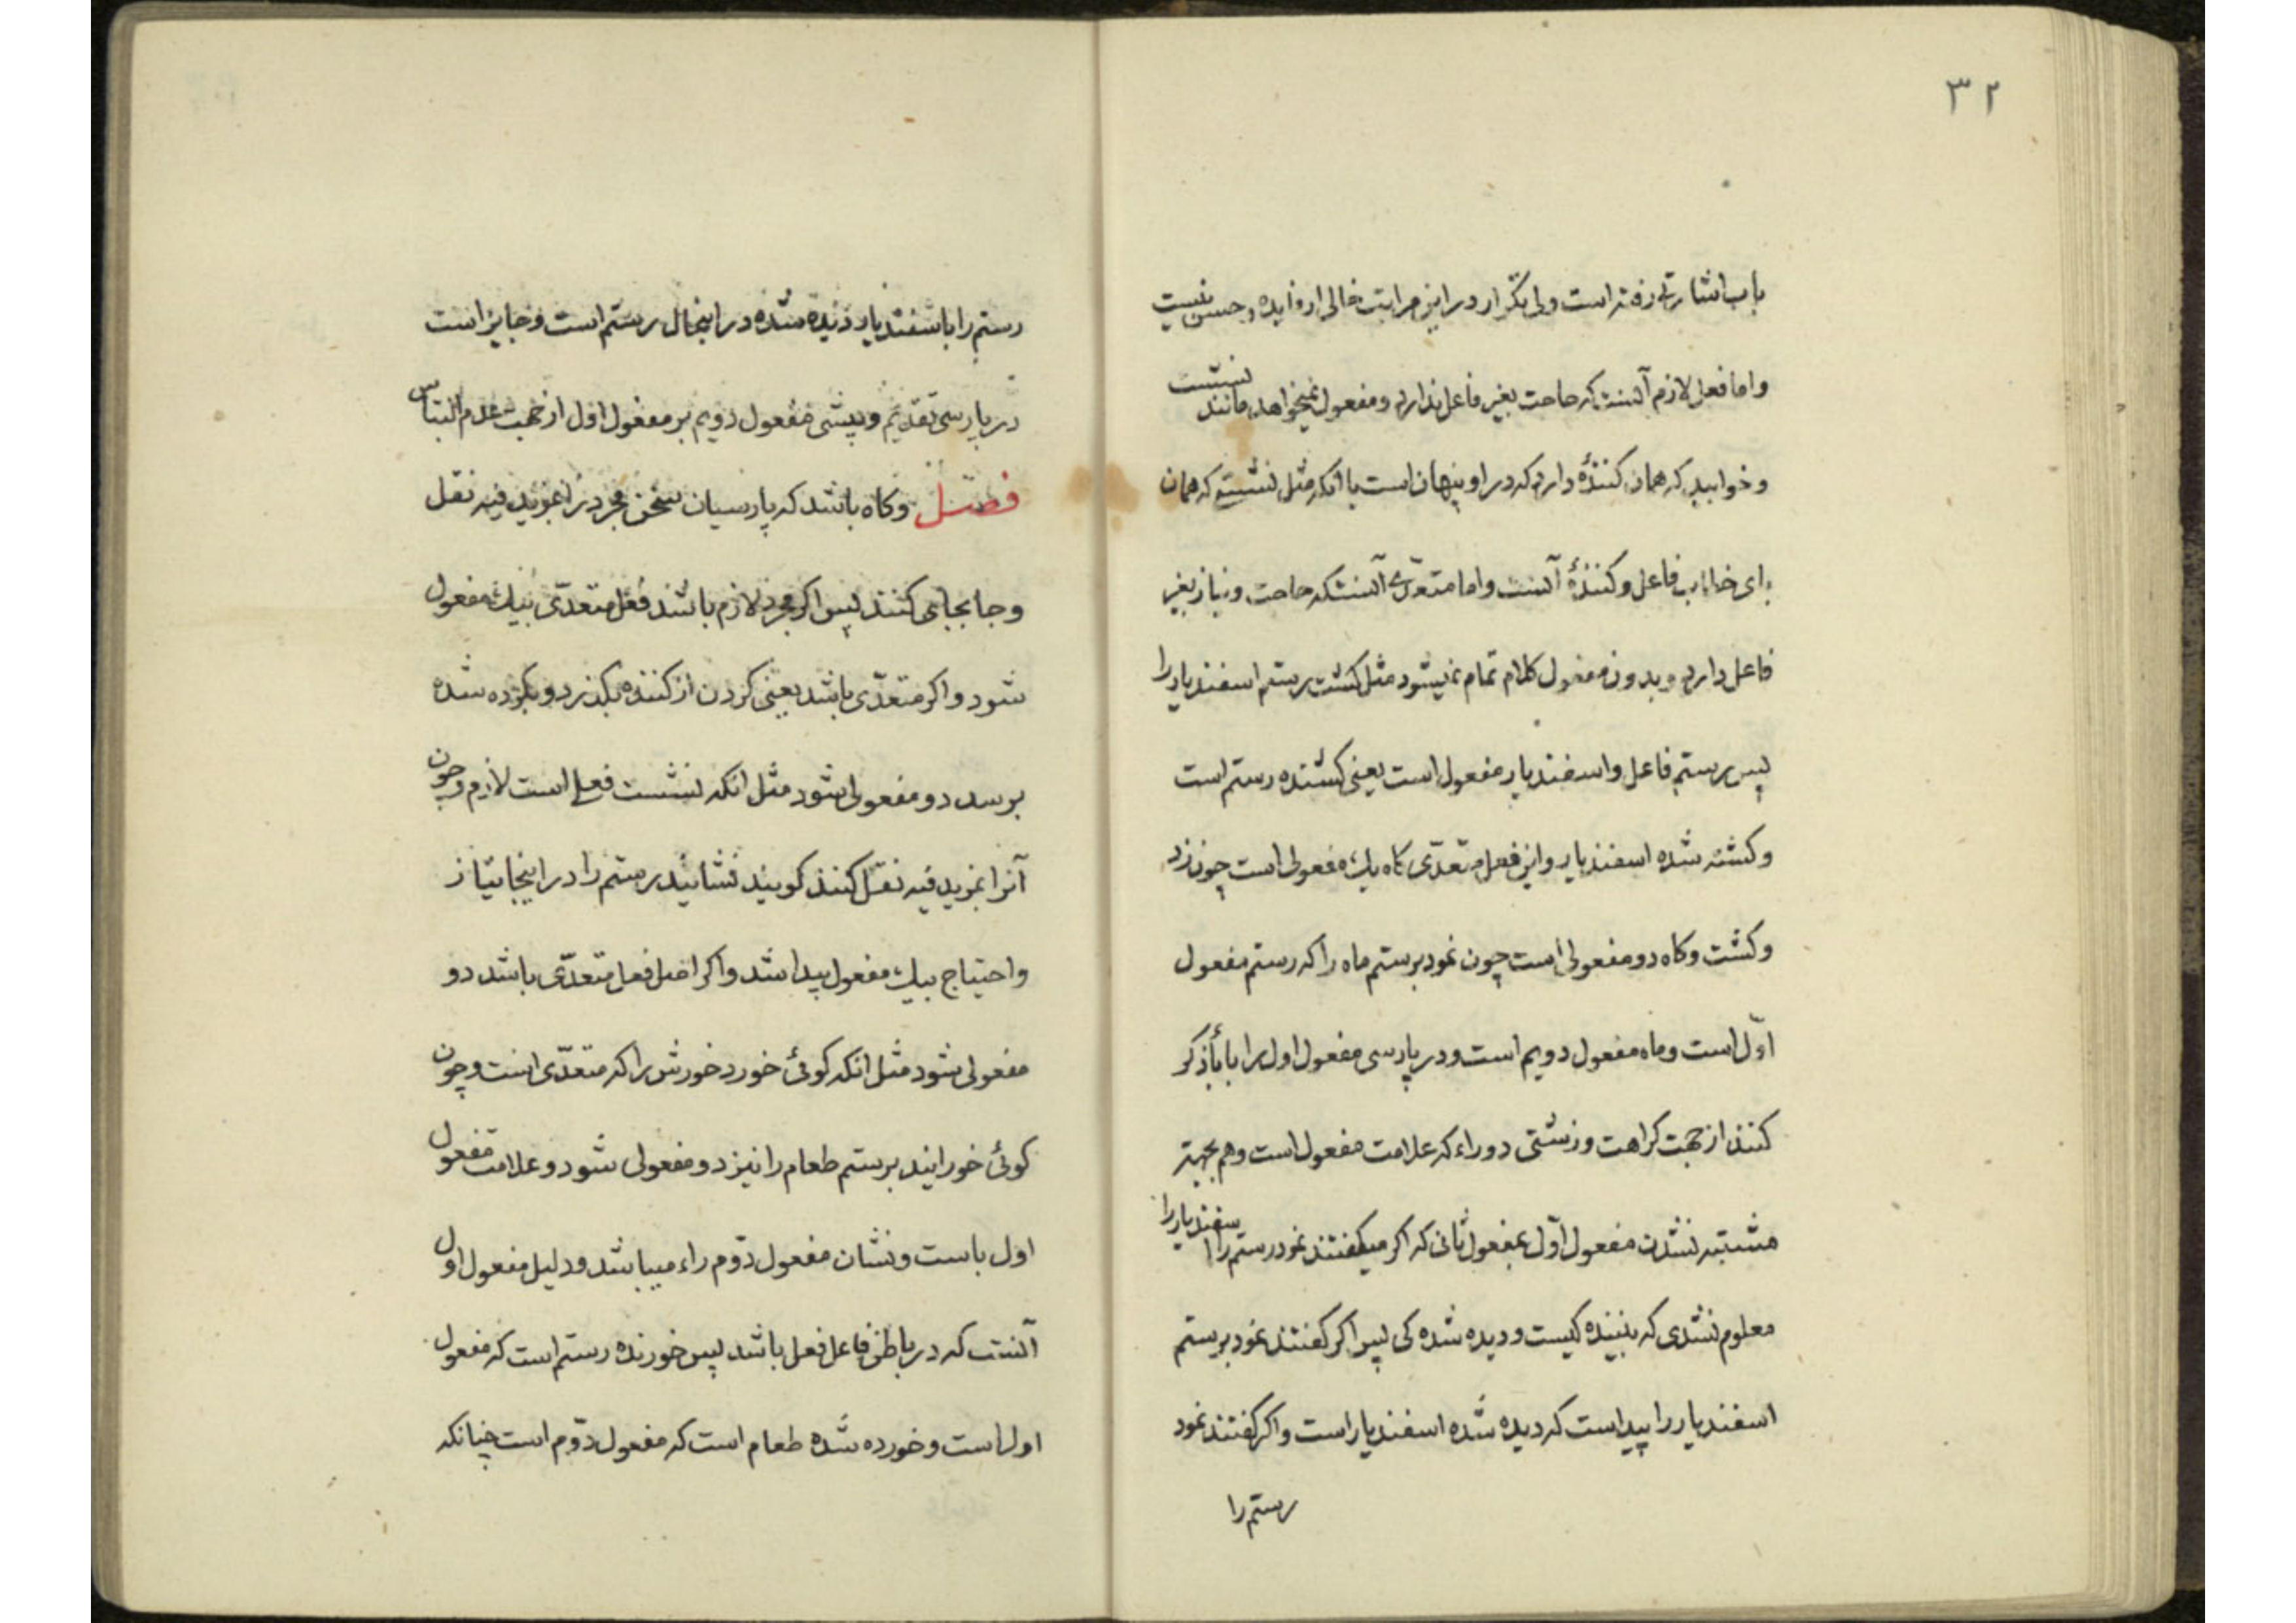 ۳۲
باب اشارتی رفته است ولی تکرار در این مراتب خالی از فایده و حسن نیست
و اما فعل لازم آنست که حاجت بغیر فاعل ندارد و مفعول نمیخواهد مانند نشست
و خوابید که همان کنندهٔ دارد که در او پنهان است یا آنکه مثل نشسته که همان
فاعل و کنندهٔ آنست و اما متعدّی آنستکه حاجت و نیاز بغیر
فاعل دارد و بدون مفعول کلام تمام نمیشود مثل کشت رستم اسفندیار را
پس رستم فاعل و اسفندیار مفعول است یعنی کشنده رستم است
و کشته شده اسفندیار و این فعل متعدّی کاه یك مفعولی است چون زد
و کشت و کاه دو مفعولی است چون نمود برستم ماه را که رستم مفعول
اوّل است و ماه مفعول دویم است و در پارسی مفعول اول را با بأ ذکر
کنند از جهت کراهت و زشتی دو راء که علامت مفعول است و هم بجهة
مشتبه نشدن مفعول اوّل بمفعول ثانی که اکر میکفتند نمود رستم را اسفندیار را
معلوم نشدی که بیننده کیست و دیده شده کی پس اکر کفتند نمود برستم
اسفندیار را پیداست که دیده شده اسفندیار است و اکر کفتند نمود
رستم را
رستم را باسفندیار دیده شده در اینحال رستم است و جایز است
در پارسی تقدیم و پیشی مفعول دویم بر مفعول اول از جهت عدم التباس
فصل وکاه باشد که پارسیان سخن مجرد را بمزید فیه نقل
و جابجا می کنند پس اکر مجرد لازم باشد فعل متعدّی بیك مفعول
شود و اکر متعدّی باشد یعنی کردن از کننده بکذرد و بکرده شده
برسد دو مفعولی شود مثل انکه نشست فعلی است لازم و چون
آنرا بمزید فیه نقل کنند کویند نشانید رستم را در اینجا نیاز
و احتیاج بیك مفعول پیدا شد و اکر اصل فعل متعدّی باشد دو
مفعولی شود مثل انکه کوئی خورد خورش را که متعدّی است و چون
کوئی خورانید برستم طعام را نیز دو مفعولی شود و علامت مفعول
اول باست و نشان مفعول دوّم راء میباشد و دلیل مفعول اول
آنست که در باطن فاعل فعل باشد پس خورنده رستم است که مفعول
اول است و خورده شده طعام است که مفعول دوّم است چنانکه